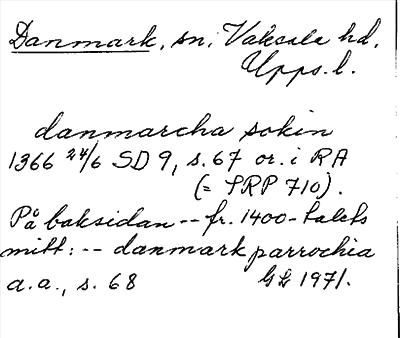 Danmark, sn, Vaksala hd,
Upps. l.
danmarcha sokin
1366 24/6 SD 9, s. 67 or. i RA
(= SRP 710).
På baksidan -- fr. 1400-talets
mitt: -- danmark parrochia
a.a., s. 68 1971.